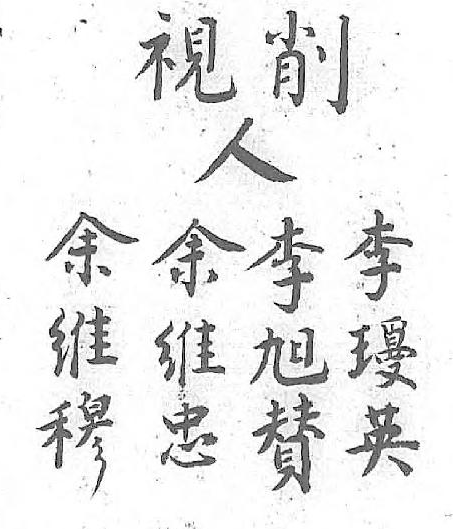 削視
人
李瓊英
李旭賛
余維忠
余維穆